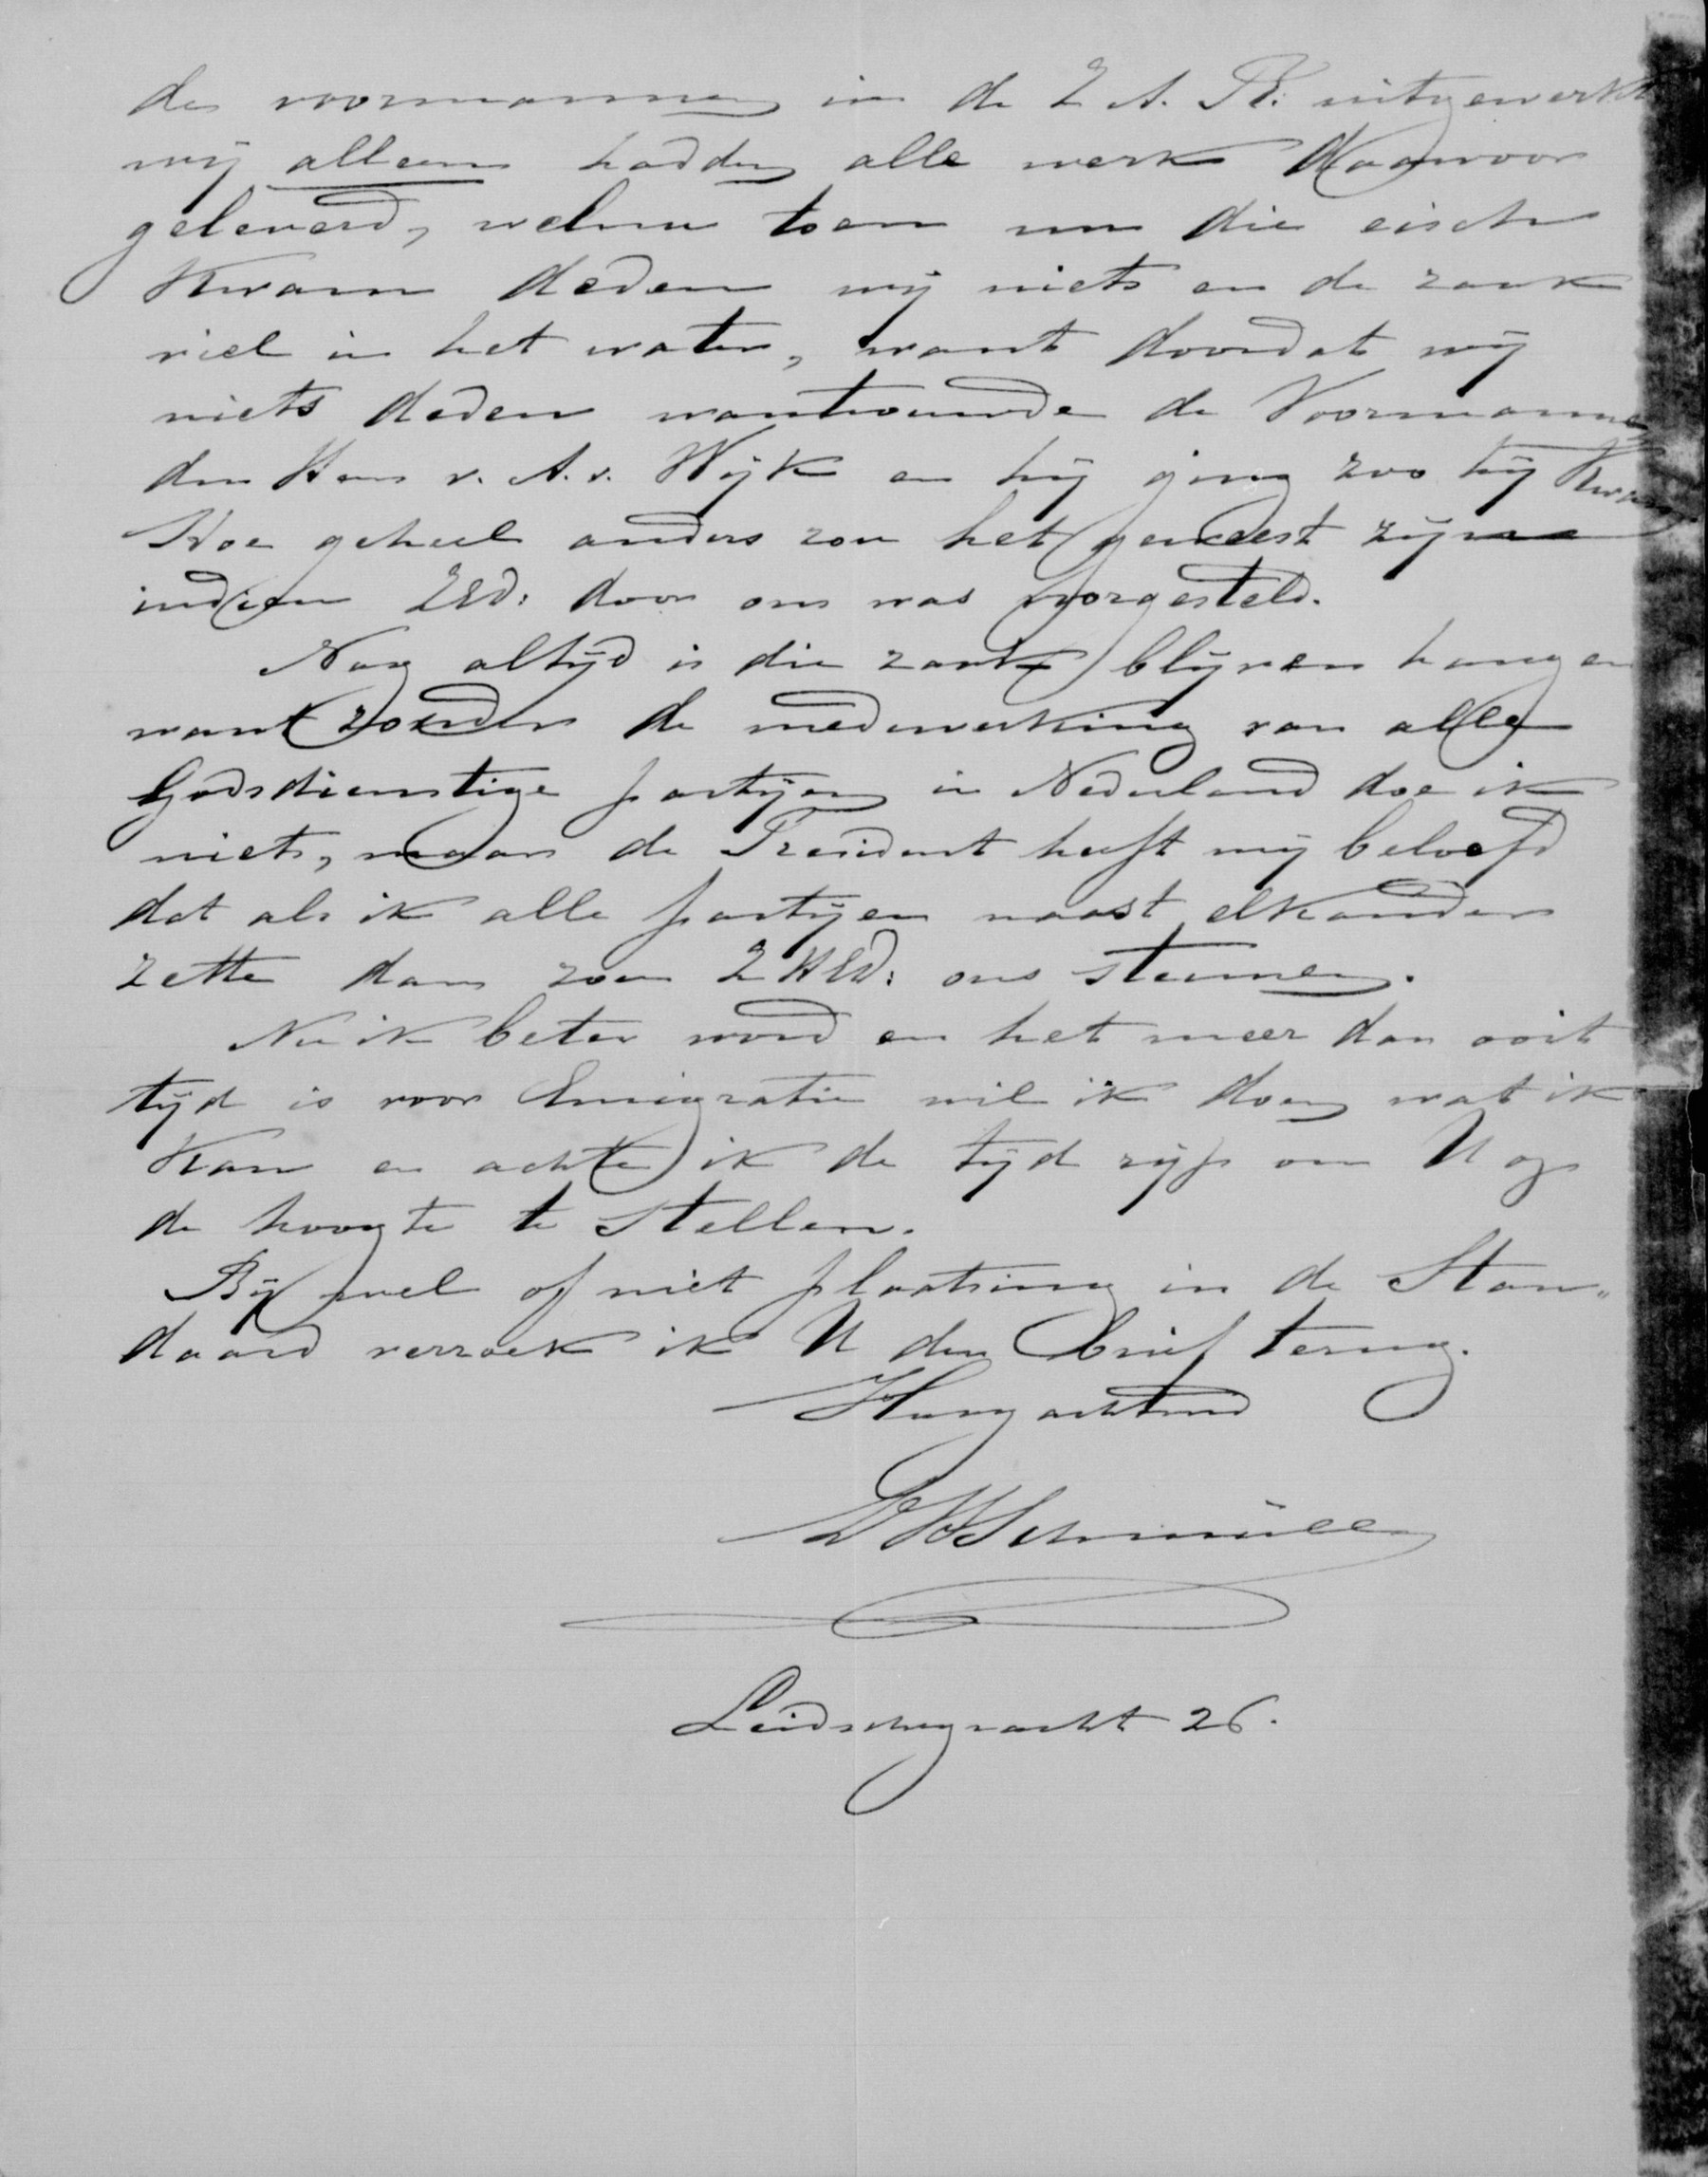 der voormannen in de Z A. R. uitgewerkt
wij alleen hadden alle werk daarvoor
geleverd, welnu toen nu die eisch
kwam deden wij niets en de zaak
viel in het water, want doordat wij
niets deden wantrouwde de Voormannen
den Heer v. A. v. Wijk en hij ging zoo hij kwam
Hoe geheel anders zou het geweest zijn
indien ZEd: door ons was voorgesteld.
Nog altijd is die zaak blijven hangen
want zonder de medewerking van alle
Godsdienstige partijen in Nederland doe ik
niets, maar de President heeft mij beloofd
dat als ik alle partijen naast elkander
zette dan zou ZHEd: ons steunen.
Nu ik beter word en het meer dan ooit
tijd is voor Emigratie wil ik doen wat ik
kan en achte ik de tijd rijp om U op
de hoogte te stellen.
Bij wel of niet plaatsing in de Stan„
daard verzoek ik U den brief terug.
Hoogachtend
Schmüll
Leidschegracht 26.